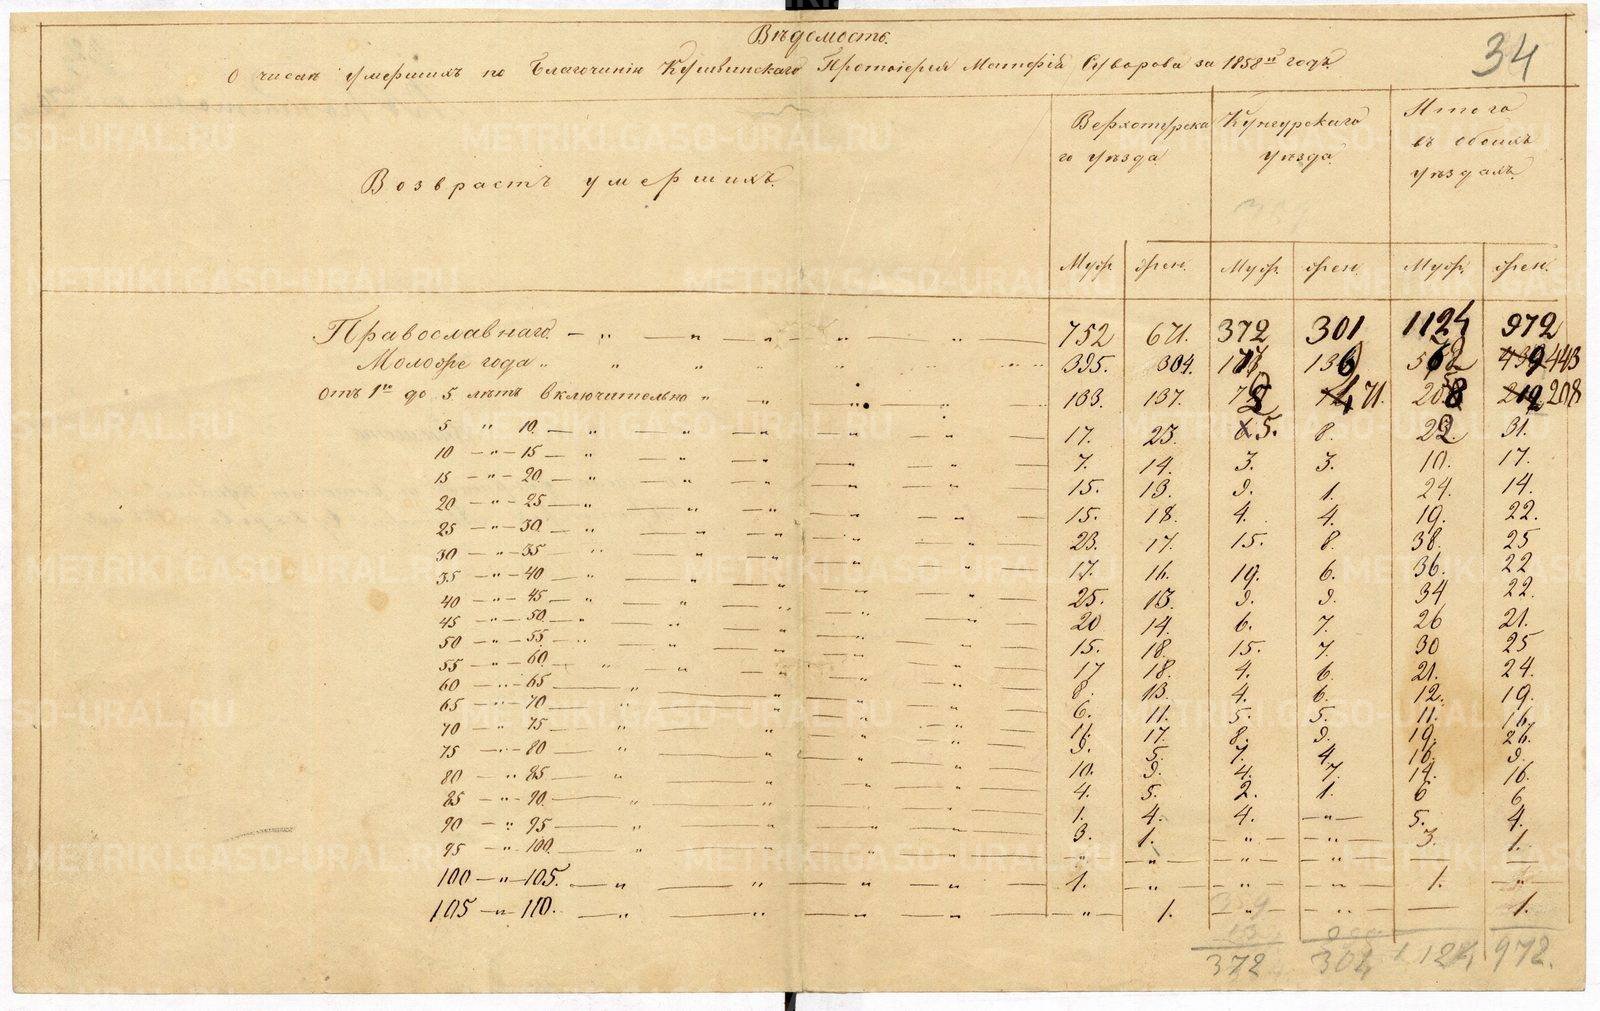 Вѣдомость.
о числѣ умершихъ по Благочинію Кушвинскаго Протоіерея Матѳія Суворова за 1858й годъ.
34
Возврастъ умершихъ.
Верхотурска
го уѣзда
Кунгурскаго
уѣзда.
Итого
въ обоихъ
уѣздахъ.
Муж. жен. Муж. жен. Муж. жен.
Православнаго — „ — „ — „ — „ — 752 671. 372 301 1124 972
Моложе года „ „ „ „ „ 395. 304.
отъ 1го до 5 лѣтъ включительно „ „ „ „ 137. 71. 208 208
5 „ 10. — „ — „ — „ — „ — 17. 23. 5. 8. 22. 31.
10 — „ — 15 — „ 7. 14. 3. 3. 10. 17.
15 — „ — 20 — „ 15. 13. 9. 1. 24. 14.
20 — „ — 25 — „ 15. 18. 4. 4. 19. 22.
25 — „ — 30 — „ 23. 17. 15. 8. 38. 25
30 — „ — 35 „ 17. 16. 19. 6. 36. 22
35 — „ — 40 — „ 25. 13. 9. 9. 34 22.
40 — „ — 45 — „ 20 14. 6. 7. 26 21.
45 — „ — 50 — „ 15. 18. 15. 7. 30 25
50 — „ — 55 — „ 17 18. 4. 6. 21. 24.
55 — „ — 60 — „ 8. 13. 4. 6. 12. 19.
60 — „ — 65 — „ 6. 11. 5. 5. 11. 16.
65 — „ — 70 — „ 11. 17. 8. 9. 19. 26.
70 — „ — 75 — „ 9. 5. 7. 4. 16. 9.
75 — „ — 80 — „ 10. 9. 4. 7. 14. 16.
80 — „ 85 — „ 4. 5. 2. 1. 6 6.
85 — „ — 90. — „ 1. 4. 4. — „ — 5. 4.
90 — „ 95 — „ 3. 1. — „ — „ 3. 1.
95 — „ 100. — „ „ — „ — „ — „ — —
100 — „ — 105. — „ 1. — „ — „ — „ — 1. — „ —
105 — „ — 110. — „ — „ — 1. — „ — „ — — 1.
372 301 1124 972.
METRIKI.GASO-URAL.RU